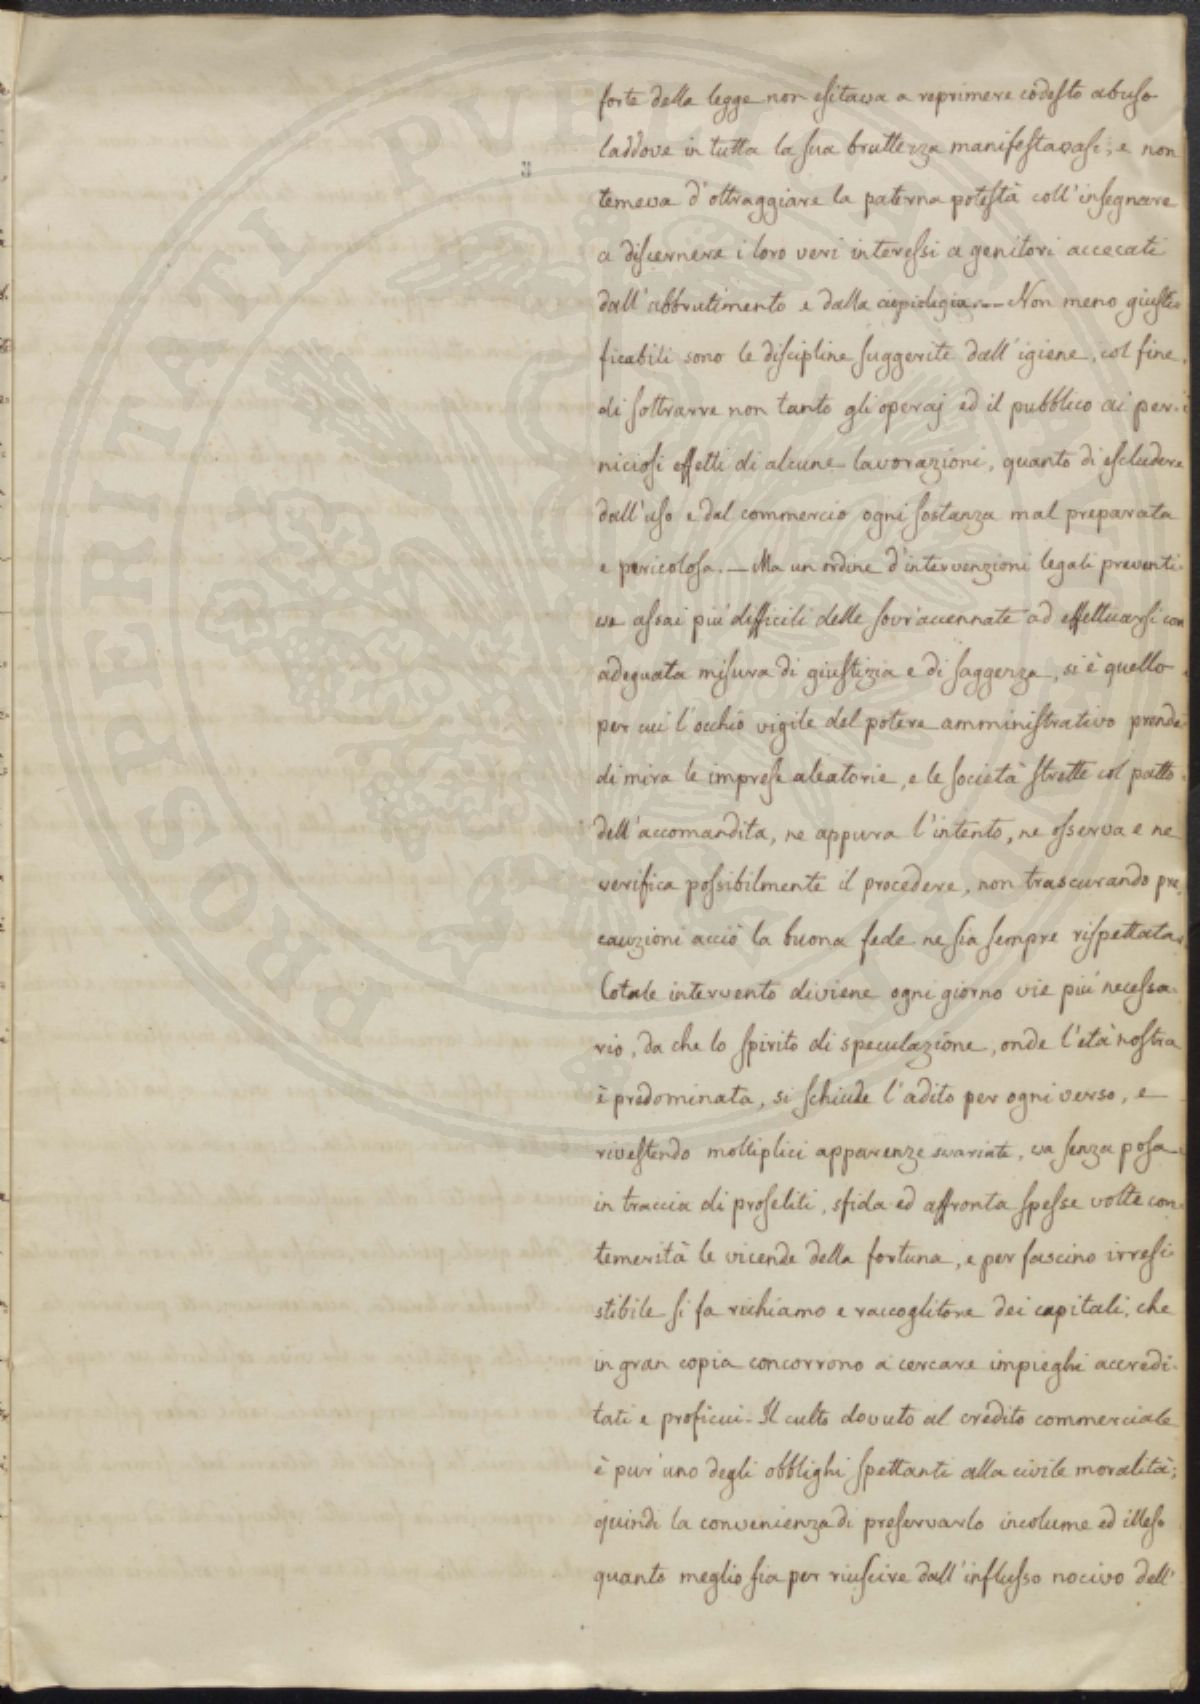 PROSPERITATI PVBLICAE
forte della legge non esitava a reprimere codesto abuso
laddove in tutta la sua bruttezza manifestavasi, e non
temeva d'oltraggiare la paterna potestà coll'insegnare
a discernere i loro veri interessi a genitori accecati
dall'abbrutimento e dalla cupidigia. — Non meno giusti-
ficabili sono le discipline suggerite dall'igiene, col fine
di sottrarre non tanto gli operaj ed il pubblico ai per-
niciosi effetti di alcune lavorazioni, quanto di escludere
dall'uso e dal commercio ogni sostanza mal preparata
e pericolosa. — Ma un ordine d'intervenzioni legali preventi-
ve assai più difficili delle sovr'accennate ad effettuarsi con
adeguata misura di giustizia e di saggezza, si è quello
per cui l'occhio vigile del potere amministrativo prende
di mira le imprese aleatorie, e le società strette col patto
dell'accomandita, ne appura l'intento, ne osserva e ne
verifica possibilmente il procedere, non trascurando pre-
cauzioni acciò la buona fede ne sia sempre rispettata.
Cotale intervento diviene ogni giorno vie più necessa-
rio, da che lo spirito di speculazione, onde l'età nostra
è predominata, si schiude l'adito per ogni verso, e
rivestendo moltiplici apparenze svariate, va senza posa
in traccia di proseliti, sfida ed affronta spesse volte con
temerità le vicende della fortuna, e per fascino irresi-
stibile si fa richiamo e raccoglitore dei capitali, che
in gran copia concorrono a cercare impieghi accredi-
tati e proficui. Il culto dovuto al credito commerciale
è pur'uno degli obblighi spettanti alla civile moralità;
quindi la convenienza di preservarlo incolume ed illeso
quanto meglio sia per riuscire dall'influsso nocivo dell'